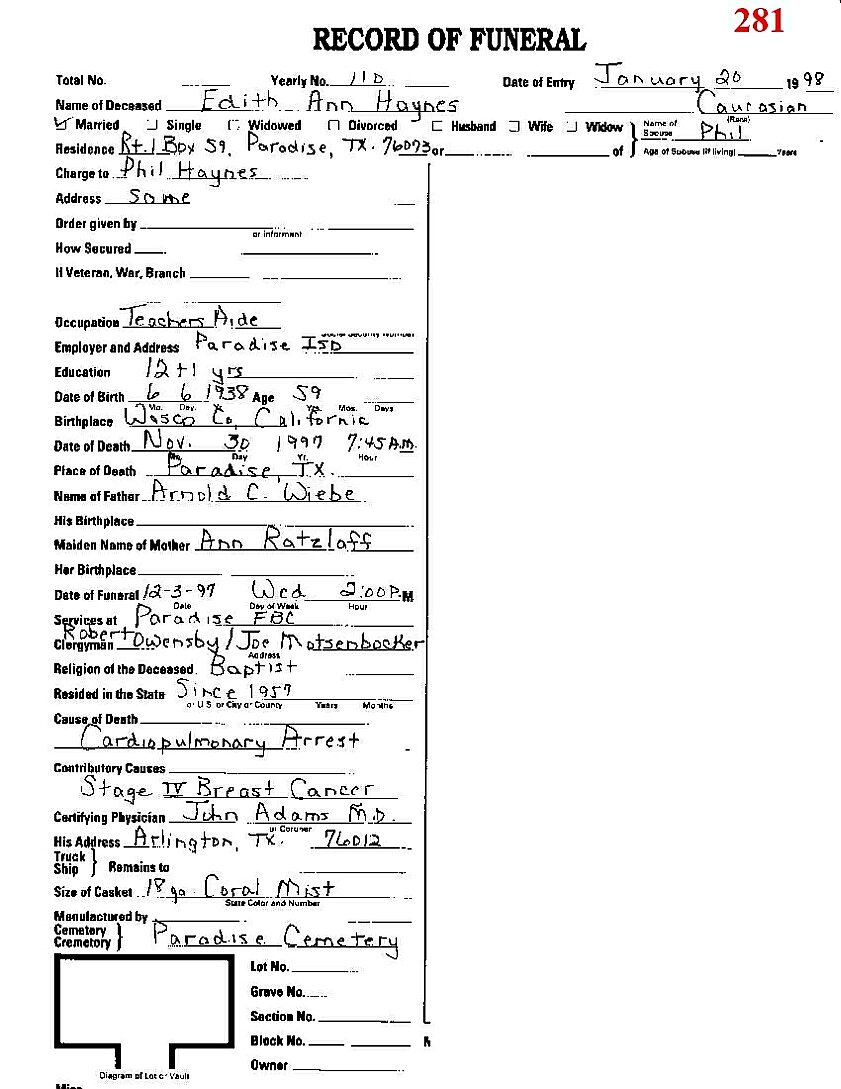 281
RECORD OF FUNERAL
Total No. Yearly No. 110 Date of Entry January 20 1998
Name of Deceased Edith Ann Haynes Caucasian
(Race)
Married Single Widowed Divorced Husband Wife Widow } Name of Spouse Phil
Residence Rt. 1 Box 59, Paradise, TX. 76073 or of } Age of Spouse (If living) Years
Charge to Phil Haynes
Address Same
Order given by
or informant
How Secured
If Veteran, War, Branch
Occupation Teachers Aide
Social Security Number
Employer and Address Paradise ISD
Education 12+1 yrs
Date of Birth 6 6 1938 Age 59
Mo. Day. Yr. Yrs. Mos. Days
Birthplace Wasco Co, California
Date of Death Nov. 30 1997 7:45 A.M.
Mo. Day Yr. Hour
Place of Death Paradise, TX.
Name of Father Arnold C. Wiebe
His Birthplace
Maiden Name of Mother Ann Ratzlaff
Her Birthplace
Date of Funeral 12-3-97 Wed 2:00 P.M
Date Day of Week Hour
Services at Paradise FBC
Clergyman Robert Owensby / Joe Matsenbocker
Address
Religion of the Deceased Baptist
Resided in the State Since 1957
or U.S. or City or County Years Months
Cause of Death
Cardiopulmonary Arrest
Contributory Causes
Stage IV Breast Cancer
Certifying Physician John Adams M.D.
or Coroner
His Address Arlington, TX. 76012
Truck
Ship } Remains to
Size of Casket 18 ga. Coral Mist
State Color and Number
Manufactured by
Cemetery
Cremetory } Paradise Cemetery
Lot No.
Grave No.
Section No.
Block No.
Owner
Diagram of Lot or Vault